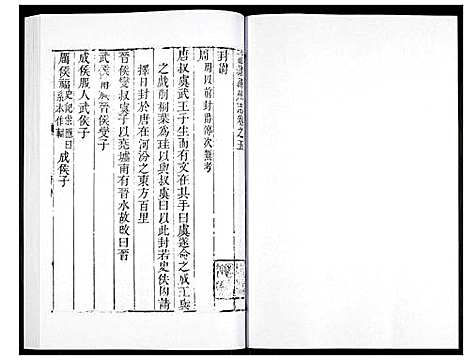 卷之五
封爵
周 周以前封爵傳次無考
唐叔虞武王子生而有文在其手曰虞遂命之成王與
之戲削桐葉為珪以與叔虞曰以此封若史佚因請
擇日封於唐在河汾之東方百里
晉侯燮叔虞子以堯墟南有晉水故改曰晉
武侯 晉侯燮子
成侯服人武侯子
厲侯福 史記世家 系本作輻 成侯子